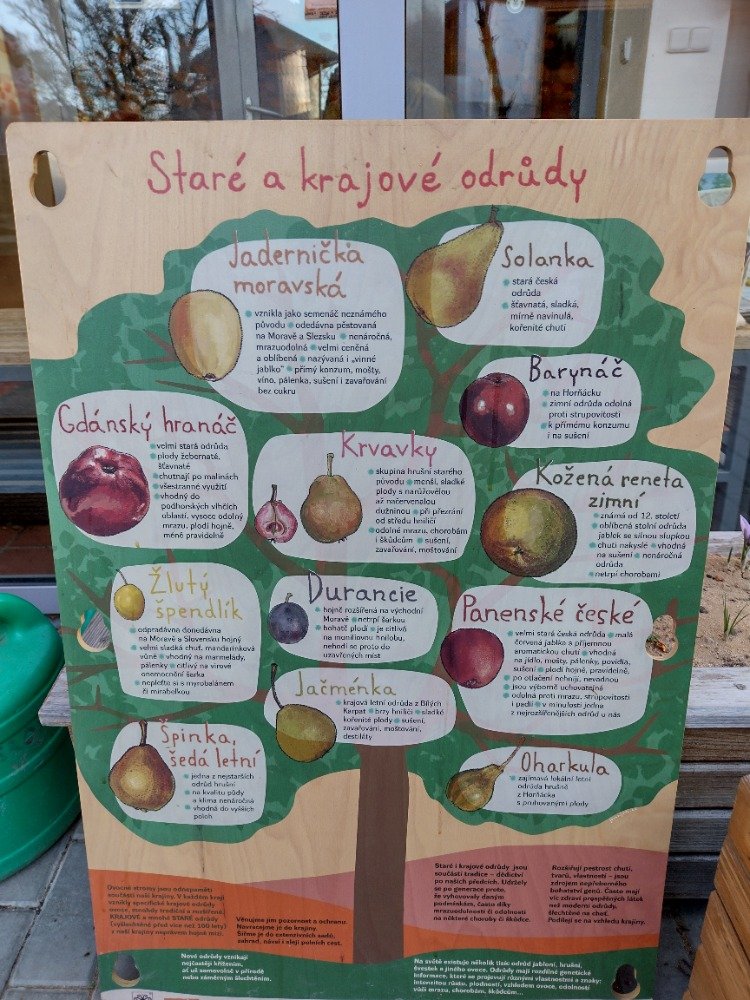 Staré a krajové odrůdy
Jadernička
moravská
vznikla jako semenáč neznámého
původu • odedávna pěstovaná
na Moravě a Slezsku • nenáročná,
mrazuodolná • velmi ceněná
a oblíbená • nazývaná i „vinné
jablko" • přímý konzum, mošty,
víno, pálenka, sušení i zavařování
bez cukru
Solanka
• stará česká
odrůda
• šťavnatá, sladká,
mírně navinulá,
kořenité chuti
Barynáč
• na Horňácku
• zimní odrůda odolná
proti strupovitosti
• k přímému konzumu
i na sušení
Gdánský hranáč
• velmi stará odrůda
• plody žebernaté,
šťavnaté
• chutnají po malinách
• všestranné využití
• vhodný do
podhorských vlhčích
oblastí, vysoce odolný
mrazu, plodí hojně,
méně pravidelně
Krvavky
• skupina hrušní starého
původu • menší, sladké
plody s narůžovělou
až načervenalou
dužninou • při přezrání
od středu hniličí
• odolné mrazu, chorobám
i škůdcům • sušení,
zavařování, moštování
Kožená reneta
zimní
• známá od 12. století
• oblíbená stolní odrůda
jablek se silnou slupkou
• chuti nakyslé • vhodná
na sušení • nenáročná
odrůda
• netrpí chorobami
Žlutý
špendlík
• odpradávna donedávna
na Moravě a Slovensku hojný
• velmi sladká chuť, mandarinková
vůně • vhodný na marmelády,
pálenky • citlivý na virové
onemocnění šarka
• nepleťte si s myrobalánem
či mirabelkou
Durancie
• hojně rozšířená na východní
Moravě • netrpí šarkou
• bohatě plodí • je citlivá
na moniliovou hnilobu,
nehodí se proto do
uzavřených míst
Panenské české
• velmi stará česká odrůda • malá
červená jablka s příjemnou
aromatickou chutí • vhodná
na jídlo, mošty, pálenky, povidla,
sušení • plodí hojně, pravidelně,
• po otlačení nehnijí, nevadnou
• jsou výborně uchovatelné
• odolná proti mrazu, strupovitosti
i padlí • v minulosti jedna
z nejrozšířenějších odrůd u nás
Jačménka
• krajová letní odrůda z Bílých
Karpat • brzy hniličí • sladké
kořenité plody • sušení,
zavařování, moštování,
destiláty
Špinka,
šedá letní
• jedna z nejstarších
odrůd hrušní
• na kvalitu půdy
a klima nenáročná
• vhodná do vyšších
poloh
Oharkula
• zajímavá lokální letní
odrůda hrušně
z Horňácka
s protkovanými plody
Ovocné stromy jsou odnepaměti
součástí naší krajiny. V každém kraji
vznikly specifické krajové odrůdy
ovoce, mnohdy tradiční a rozšířené.
KRAJOVÉ a mnohé STARÉ odrůdy
(vyšlechtěné před více než 100 lety)
z naší krajiny neprávem bohužel mizí.
Věnujme jim pozornost a ochranu.
Navracejme je do krajiny.
Šiřme je do extenzivních sadů,
zahrad, návsí i alejí polních cest.
Staré i krajové odrůdy jsou
součástí tradice – dědictví
po našich předcích. Udržely
se po generace proto,
že vyhovovaly daným
podmínkám, často díky
mrazuodolnosti či odolnosti
na některé choroby či škůdce.
Rozšiřují pestrost chutí,
tvarů, vlastností – jsou
zdrojem nepřeberného
bohatství genů. Často mají
víc zdraví prospěšných látek
než moderní odrůdy,
šlechtěné na chuť.
Podílejí se na vzhledu krajiny.
Nové odrůdy vznikají
nejčastěji křížením,
ať už samovolně v přírodě
nebo záměrným šlechtěním.
Na světě existuje několik tisíc odrůd jabloní, hrušní,
švestek a jiného ovoce. Odrůdy mají rozdílné genetické
informace, které se projevují různými vlastnostmi a znaky:
intenzitou růstu, plodností, vzhledem ovoce, odolností
vůči mrazu, chorobám, škůdcům...